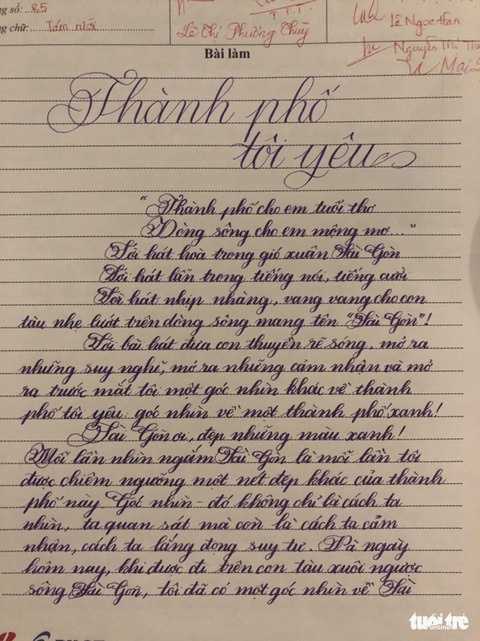 số: 8,5
chữ: Tám rưỡi
Lê Thị Phương Thuỳ
Lê Ngọc Hân
Nguyễn Thị
Mai
Bài làm
Thành phố
tôi yêu
"Thành phố cho em tuổi thơ
Dòng sông cho em mộng mơ..."
Lời hát hoà trong gió xuân Sài Gòn
Lời hát lẫn trong tiếng nói, tiếng cười
Lời hát nhịp nhàng, vang vang cho con
tàu nhẹ lướt trên dòng sông mang tên "Sài Gòn"!
Lời bài hát đưa con thuyền rẽ sóng, mở ra
những suy nghĩ, mở ra những cảm nhận và mở
ra trước mắt tôi một góc nhìn khác về thành
phố tôi yêu, góc nhìn về một thành phố xanh!
Sài Gòn ơi, đẹp những màu xanh!
Mỗi lần nhìn ngắm Sài Gòn là mỗi lần tôi
được chiêm ngưỡng một nét đẹp khác của thành
phố này. Góc nhìn - đó không chỉ là cách ta
nhìn, ta quan sát mà còn là cách ta cảm
nhận, cách ta lắng đọng suy tư. Và ngày
hôm nay, khi được đi trên con tàu xuôi ngược
sông Sài Gòn, tôi đã có một góc nhìn về Sài
tuổi trẻ